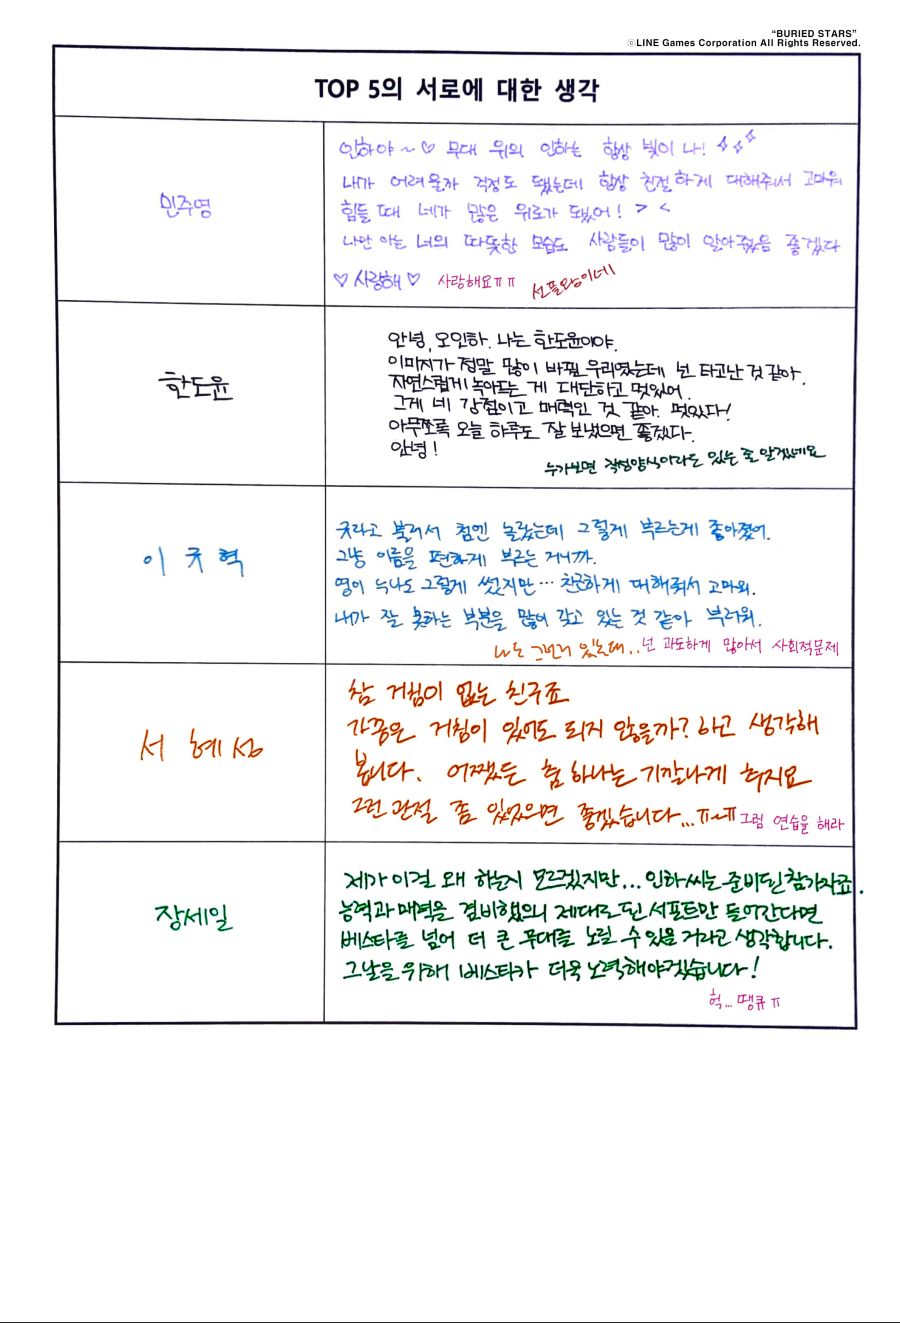 “BURIED STARS”
ⓒLINE Games Corporation All Rights Reserved.
TOP 5의 서로에 대한 생각
민주영
인하야~♡ 무대 위의 인하는 항상 빛이 나!
내가 어려울까 걱정도 됐는데 항상 친절하게 대해줘서 고마워
힘들 때 네가 많은 위로가 됐어! > <
나만 아는 너의 따뜻한 모습도 사람들이 많이 알아줬음 좋겠다
♡사랑해♡ 사랑해요ㅠㅠ 선플왕이네
한도윤
안녕, 오인하. 나는 한도윤이야.
이미지가 정말 많이 바뀐 우리였는데 넌 타고난 것 같아.
자연스럽게 녹아드는 게 대단하고 멋있어.
그게 네 강점이고 매력인 것 같아. 멋있다!
아무쪼록 오늘 하루도 잘 보냈으면 좋겠다.
안녕!
누가보면 걱정양식이라도 있는 줄 알겠네요
이규혁
규라고 불러서 첨엔 놀랐는데 그렇게 부르는게 좋아졌어.
그냥 이름을 편하게 부르는 거니까.
영이 누나도 그렇게 썼지만… 친근하게 대해줘서 고마워.
내가 잘 못하는 부분을 많이 갖고 있는 것 같아 부러워.
나는 그런거 있는데.. 넌 과도하게 많아서 사회적문제
서혜성
참 거침이 없는 친구죠
가끔은 거침이 있어도 되지 않을까? 하고 생각해
봅니다. 어쨌든 춤 하나는 기깔나게 추지요
그런 관절 좀 있었으면 좋겠습니다...ㅠㅅㅠ 그럼 연습을 해라
장세일
제가 이걸 왜 하는지 모르겠지만... 인하씨는 준비된 참가자죠.
능력과 매력을 겸비했으니 제대로 된 서포트만 들어간다면
베스타를 넘어 더 큰 무대를 노릴 수 있을 거라고 생각합니다.
그날을 위해 베스타가 더욱 노력해야겠습니다!
헉... 땡큐ㅠ